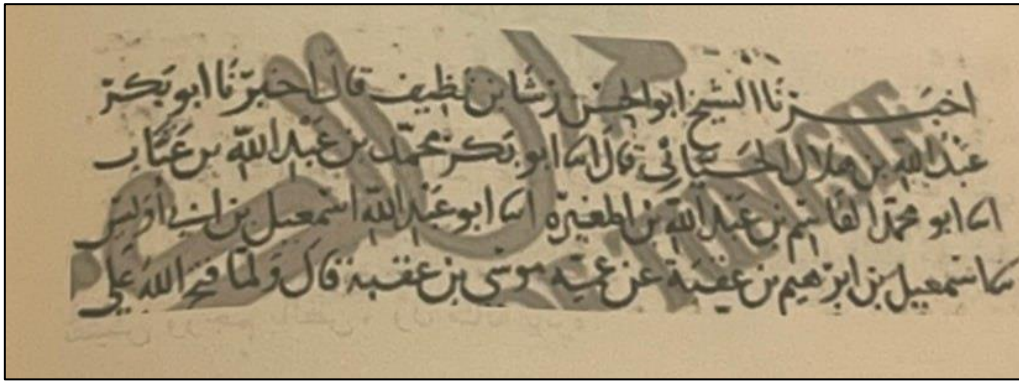 اخبرنا الشيخ ابو الحسن رشا بن نظيف قال اخبرنا ابو بكر
عبد الله بن هلال الحنائي قال انا ابو بكر محمد بن عبد الله بن عتاب
انا ابو محمد القاسم بن عبد الله بن المغيرة انا ابو عبد الله اسمعيل بن ابي أويس
نا اسمعيل بن ابرهيم بن عقبة عن عمه موسى بن عقبة قال ولما فتح الله على